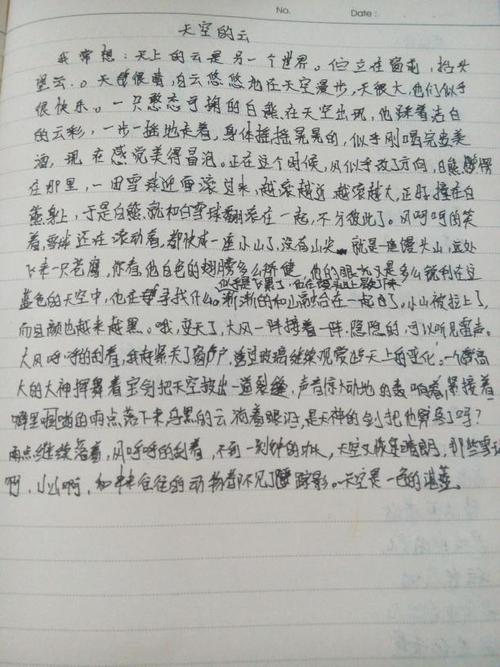 No.
Date:
天空的云
我常想:天上的云是另一个世界。伫立在窗前,抬头
望云。天蓝很晴,白云悠悠地在天空漫步,天很大,他们似乎
很快乐。一只憨态可掬的白熊在天空出现,他踩着洁白
的云彩,一步一摇地走着,身体摇摇晃晃的,似乎刚喝完美
酒,现在感觉美得冒泡。正在这个时候,风似乎改了方向,白熊愣愣
在那里,一田雪球迎面滚过来,越滚越近越滚越大,正好撞在白
熊身上,于是白熊就和白雪球翻滚在一起,不分彼此了。风呵呵的笑
着,雪球还在滚动着,都快成一座小山了,没有山尖,就是一座馒头山,远处
下来一只老鹰,你看他白色的翅膀多么矫健,他的眼光是多么锐利在这
似乎是飞累了,他在馒头山上歇了下来
蓝色的天空中,他在寻找什么。渐渐的和山融合在一起了。小山被拉上了,
而且颜色越来越黑。哦,变天了,大风一阵接着一阵,隐隐的,可以听见雷声。
大风呼呼的刮着,我赶紧关了窗户,透过玻璃继续观察些天上的变化。一个高
大的天神挥舞着宝剑把天空放出一道裂缝,声音惊天动地的轰响着,紧接着
噼里啪啦的雨点落下来,乌黑的云淌着眼泪,是天神的剑把他弄哭了吗?
雨点继续落着,风呼呼的刮着,不到一刻钟的功夫,天空又恢复晴朗了,那些雪
啊,小山啊,和来来往往的动物都不见了踪影。天空是一色的湛蓝。